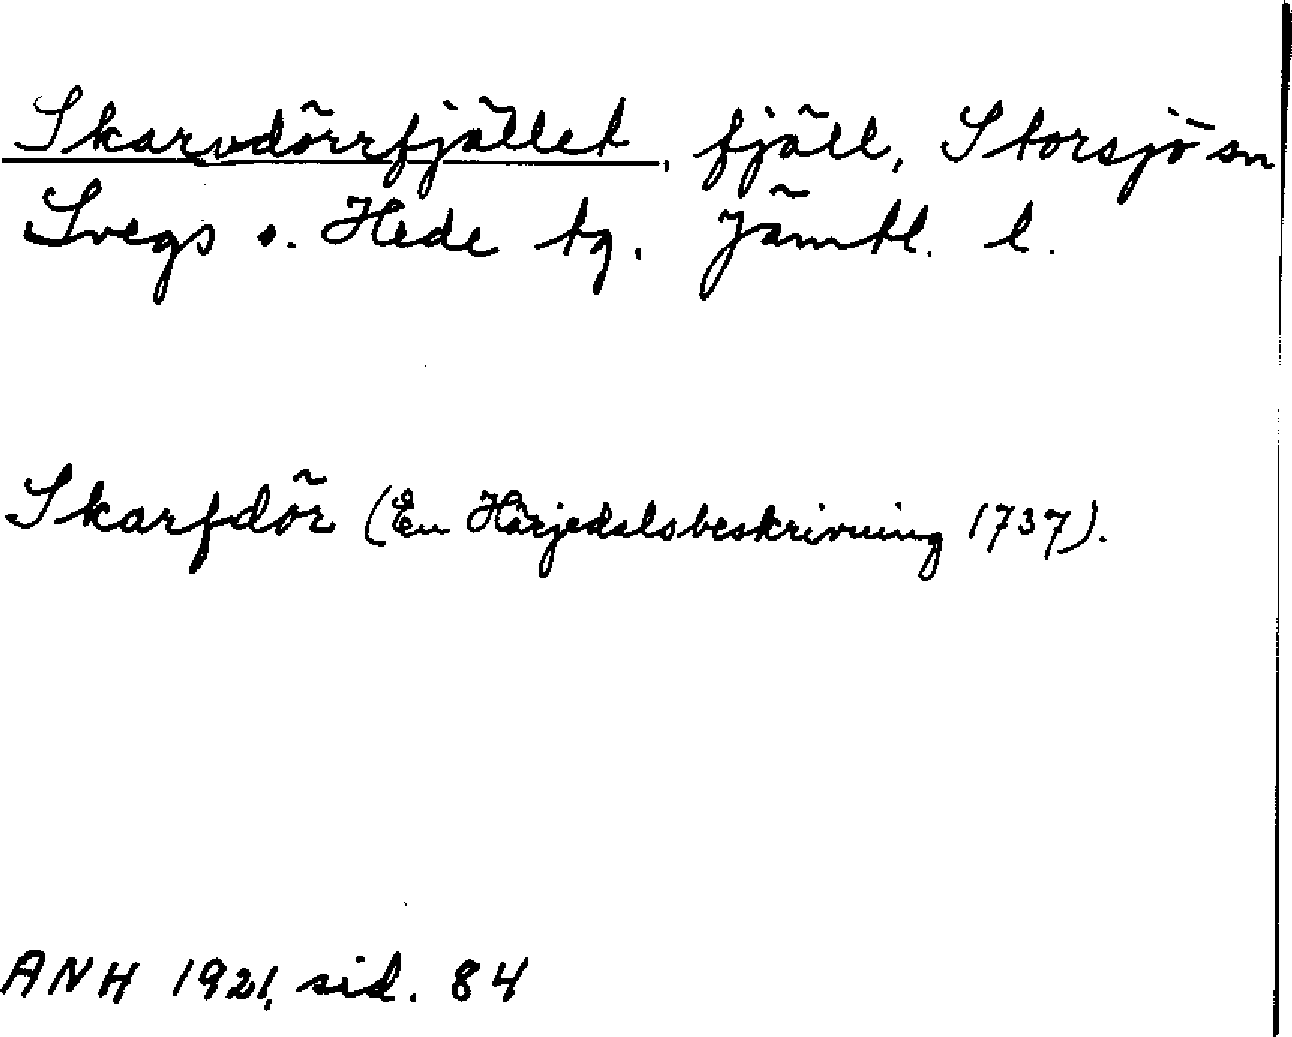 Skarvdörrfjället, fjäll, Storsjö sn
Svegs o. Hede tg. Jämtl. l.
Skarfdör (En Härjedalsbeskrivning 1737).
ANH 1921, sid. 84